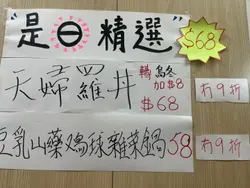 "是日精選"
$68
天婦羅丼
轉烏冬
加$8
$68
冇9折
豆乳山藥鷄球雜菜鍋 58
冇9折